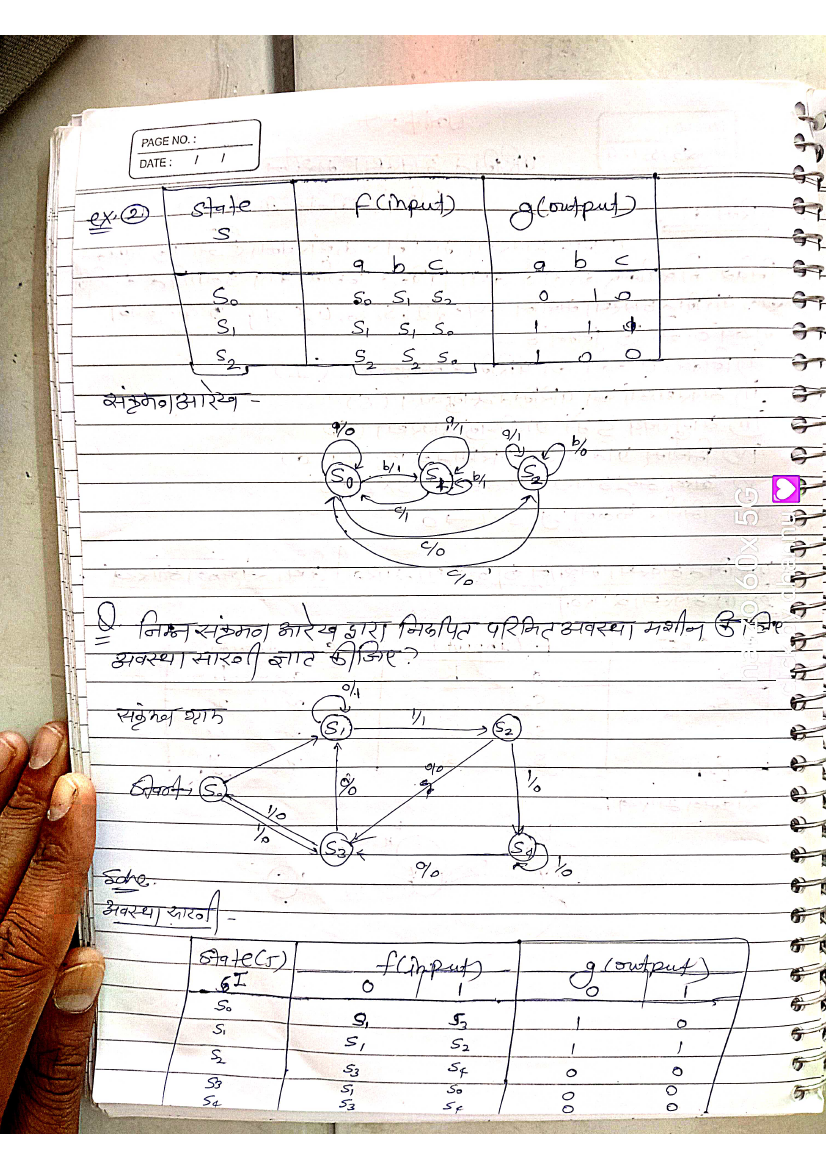 PAGE NO. :
DATE : / /
ex. ② State f(input) g(output)
S
a b c a b c
S₀ S₀ S₁ S₂ 0 1 0
S₁ S₁ S₁ S₀ 1 1 1
S₂ S₂ S₂ S₀ 1 0 0
संक्रमण आरेख -
a/0 a/1 a/1 b/0
S₀ b/1 S₁ b/1 S₂
c/1
c/0
c/0
Q निम्न संक्रमण आरेख द्वारा निरूपित परिमित अवस्था मशीन की
अवस्था सारणी ज्ञात कीजिए ?
0/1
संक्रमण S₁ 1/1 S₂
S₀ 0/0 0/0 1/0
1/0
1/0 S₃ S₄ 1/0
0/0
अवस्था सारणी -
State(S) f(input) g(output)
I 0 1 0 1
S₀ S₁ S₃ 1 0
S₁ S₁ S₂ 1 1
S₂ S₃ S₄ 0 0
S₃ S₁ S₀ 0 0
S₄ S₃ S₄ 0 0
60x 5G